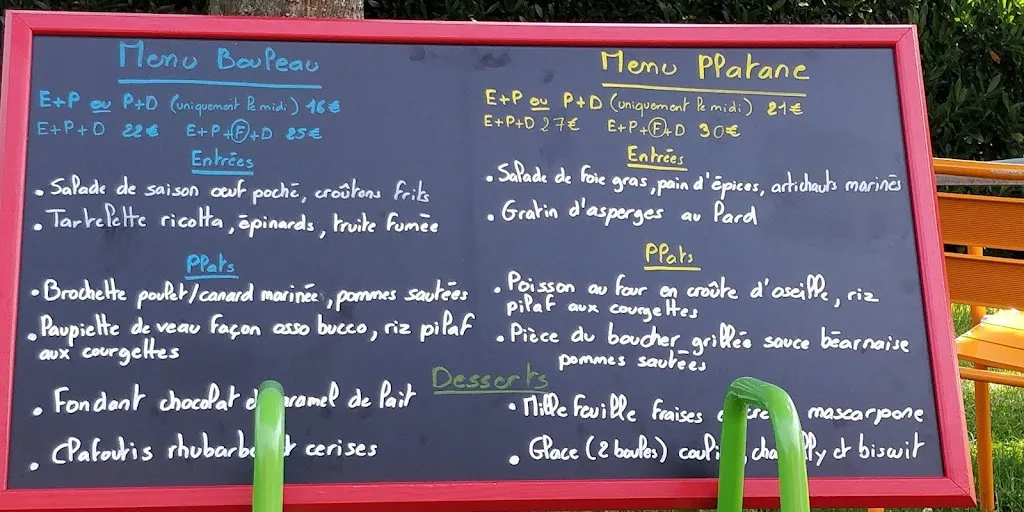 Menu Bouleau
E+P ou P+D (uniquement le midi) 16€
E+P+D 22€ E+P+F+D 25€
Entrées
• Salade de saison œuf poché, croûtons frits
• Tartelette ricotta, épinards, truite fumée
Plats
• Brochette poulet/canard marinée, pommes sautées
• Paupiette de veau façon osso bucco, riz pilaf
aux courgettes
Menu Platane
E+P ou P+D (uniquement le midi) 21€
E+P+D 27€ E+P+F+D 30€
Entrées
• Salade de foie gras, pain d'épices, artichauts marinés
• Gratin d'asperges au lard
Plats
• Poisson au four en croûte d'oseille, riz
pilaf aux courgettes
• Pièce du boucher grillée sauce béarnaise
pommes sautées
Desserts
• Fondant chocolat caramel de lait
• Clafoutis rhubarbe et cerises
• Mille feuille fraises mascarpone
• Glace (2 boules) coulis, chantilly et biscuit